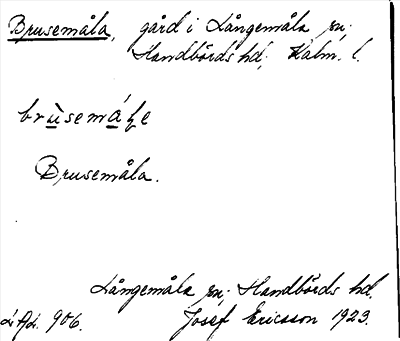 Brusemåla, gård i Långemåla sn,
Handbörds hd, Kalm. l.
Brusemåla.
Långemåla sn, Handbörds hd.
Josef Ericsson 1923.
906.